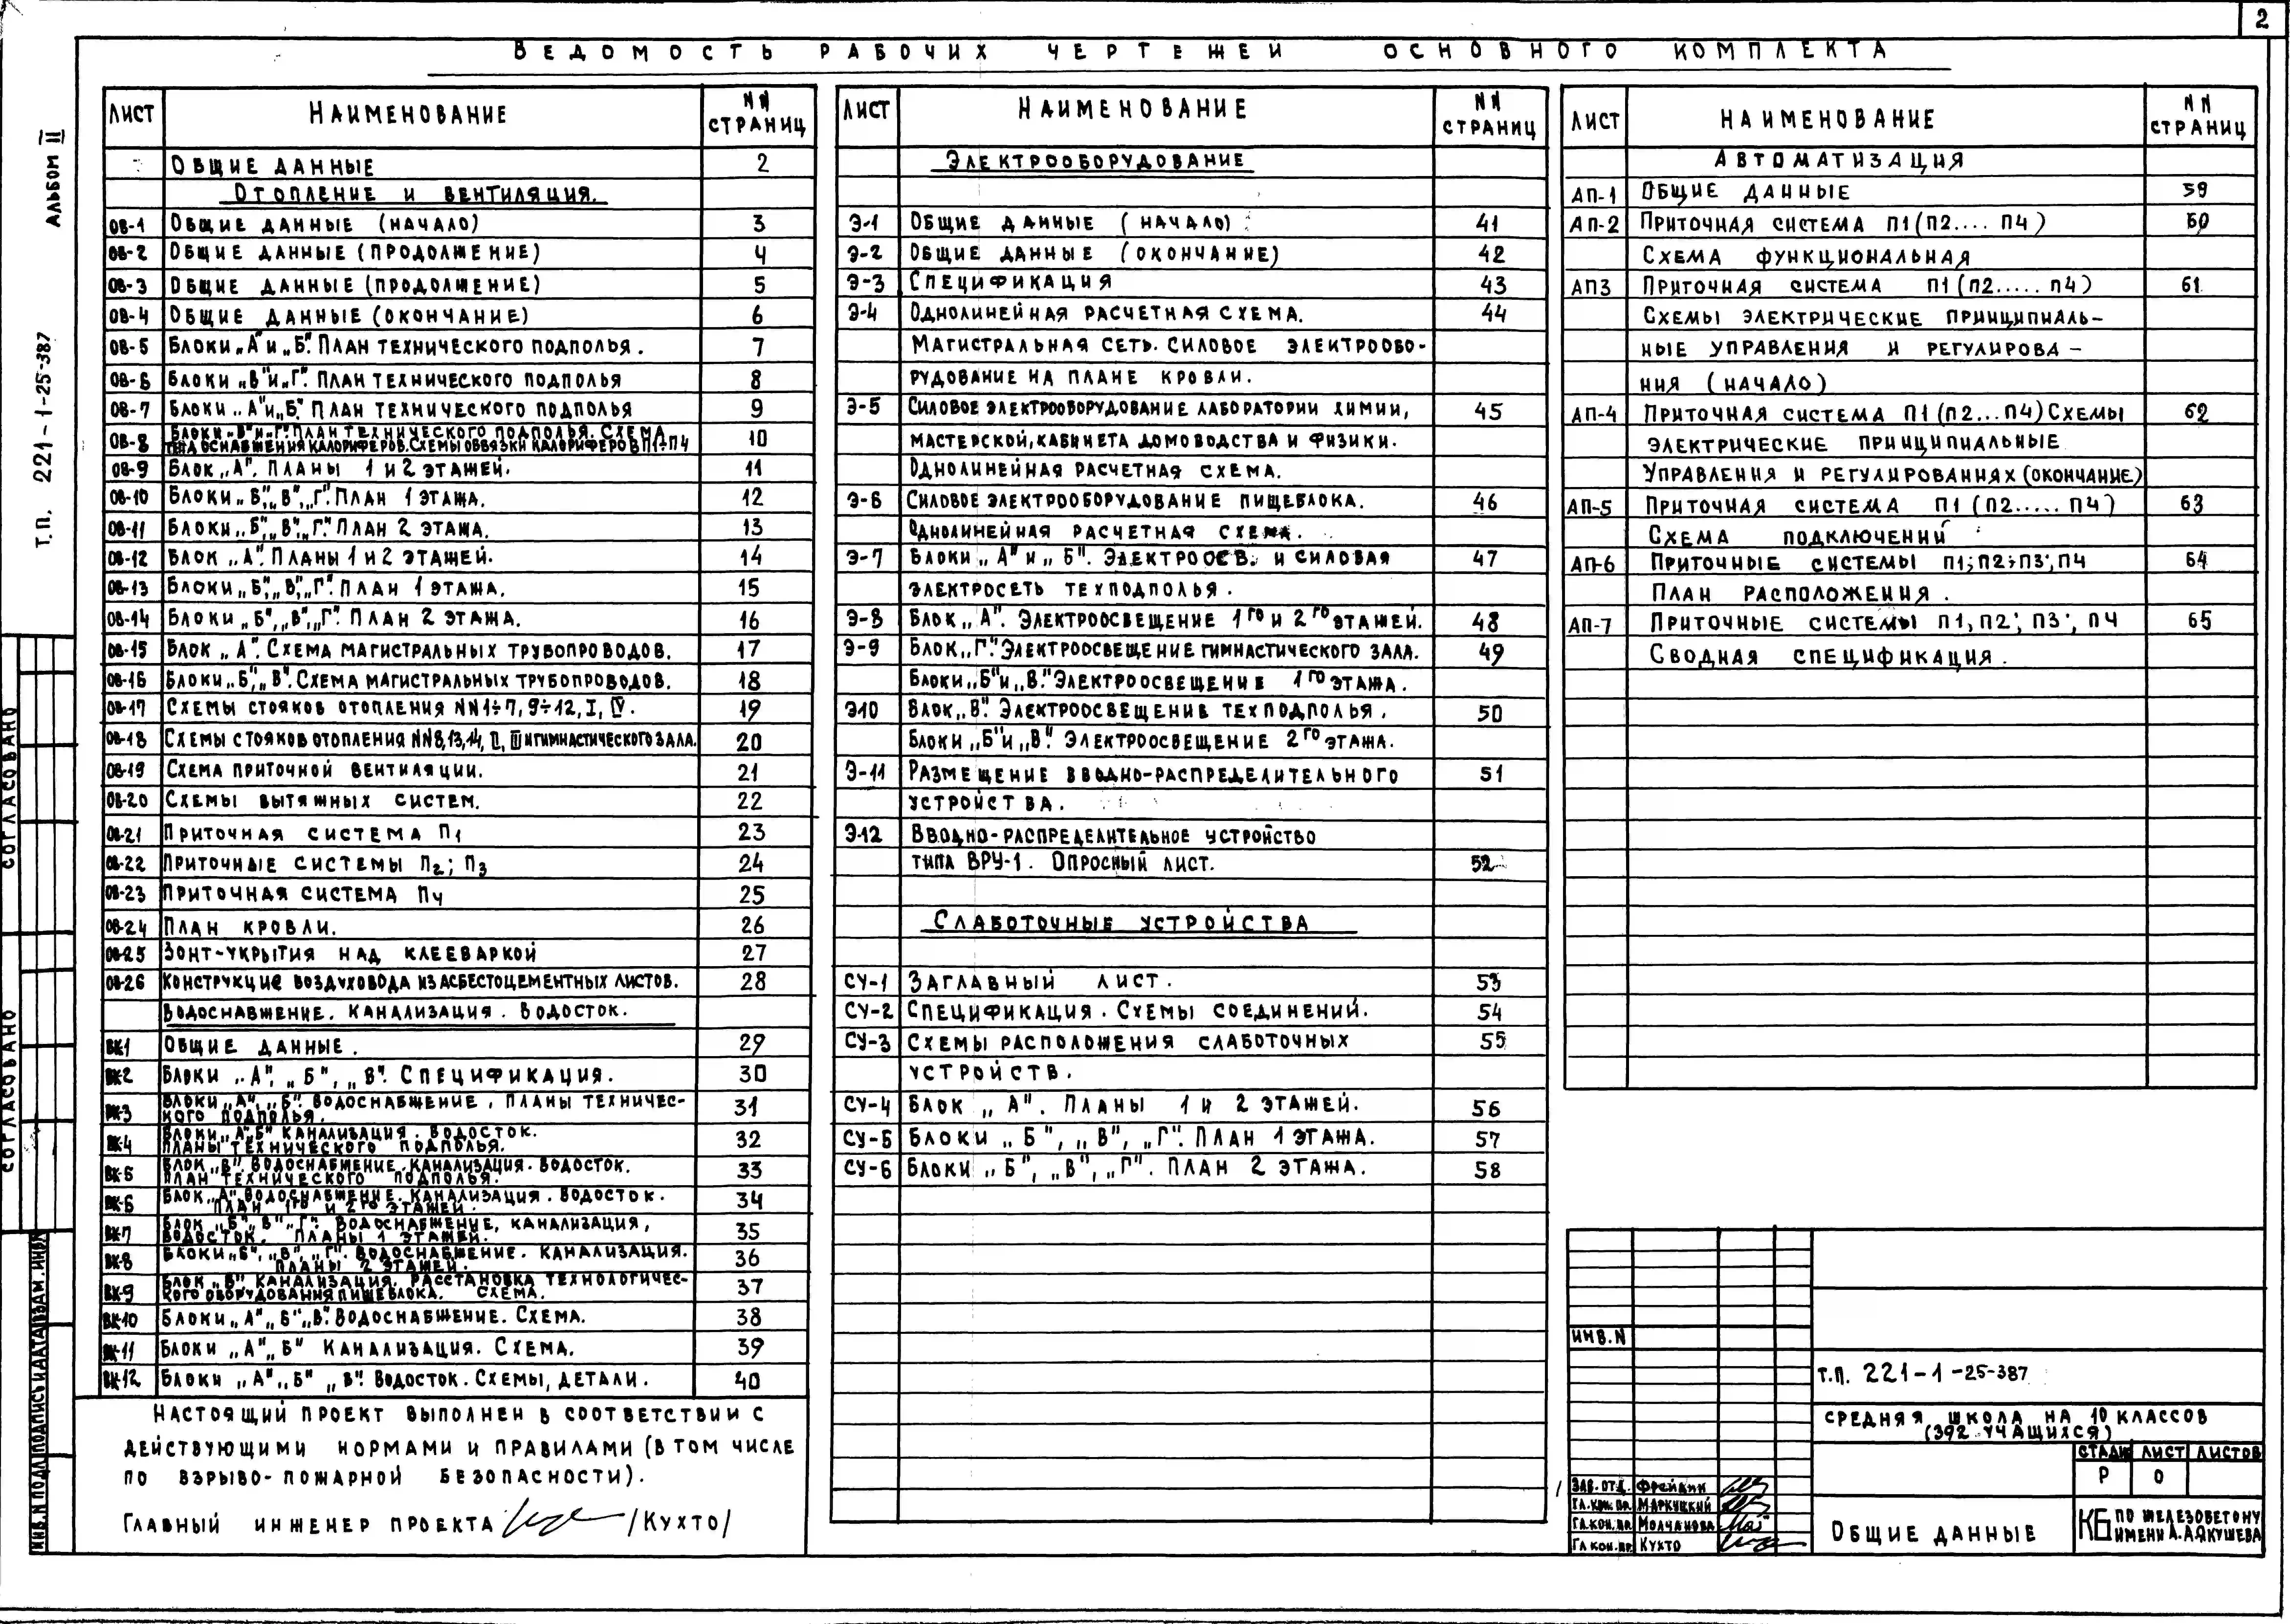 2
Ведомость рабочих чертежей основного комплекта
Альбом II
Т.П. 221-1-25-387
Лист Наименование NN страниц
Общие данные 2
Отопление и вентиляция.
ОВ-1 Общие данные (начало) 3
ОВ-2 Общие данные (продолжение) 4
ОВ-3 Общие данные (продолжение) 5
ОВ-4 Общие данные (окончание) 6
ОВ-5 Блоки „А" и „Б". План технического подполья. 7
ОВ-6 Блоки „В" и „Г". План технического подполья 8
ОВ-7 Блоки „А" и „Б". План технического подполья 9
ОВ-8 Блоки „В" и „Г". План технического подполья. Схема
теплоснабжения калориферов. Схемы обвязки калориферов П1÷П4 10
ОВ-9 Блок „А". Планы 1 и 2 этажей. 11
ОВ-10 Блоки „Б", „В", „Г". План 1 этажа. 12
ОВ-11 Блоки „Б", „В", „Г". План 2 этажа. 13
ОВ-12 Блок „А". Планы 1 и 2 этажей. 14
ОВ-13 Блоки „Б", „В", „Г". План 1 этажа. 15
ОВ-14 Блоки „Б", „В", „Г". План 2 этажа. 16
ОВ-15 Блок „А". Схема магистральных трубопроводов. 17
ОВ-16 Блоки „Б", „В". Схема магистральных трубопроводов. 18
ОВ-17 Схемы стояков отопления NN1÷7, 9÷12, I, IV. 19
ОВ-18 Схемы стояков отопления NN8,13,14, II, III и гимнастического зала. 20
ОВ-19 Схема приточной вентиляции. 21
ОВ-20 Схемы вытяжных систем. 22
ОВ-21 Приточная система П1 23
ОВ-22 Приточные системы П2; П3 24
ОВ-23 Приточная система П4 25
ОВ-24 План кровли. 26
ОВ-25 Зонт-укрытия над клееваркой 27
ОВ-26 Конструкция воздуховода из асбестоцементных листов. 28
Водоснабжение. Канализация. Водосток.
ВК-1 Общие данные. 29
ВК-2 Блоки „А", „Б", „В". Спецификация. 30
ВК-3 Блоки „А", „Б". Водоснабжение, планы техничес-
кого подполья. 31
ВК-4 Блоки „А", „Б" Канализация. Водосток.
Планы технического подполья. 32
ВК-5 Блок „В". Водоснабжение. Канализация. Водосток.
План технического подполья. 33
ВК-6 Блок „А" Водоснабжение. Канализация. Водосток.
План 1го и 2го этажей. 34
ВК-7 Блок „Б", „В", „Г". Водоснабжение, канализация,
водосток. Планы 1 этажей. 35
ВК-8 Блоки „Б", „В", „Г". Водоснабжение. Канализация.
Планы 2 этажей. 36
ВК-9 Блок „Б" Канализация. Расстановка технологичес-
кого оборудования пищеблока. Схема. 37
ВК-10 Блоки „А", „Б", „В". Водоснабжение. Схема. 38
ВК-11 Блоки „А", „Б" Канализация. Схема. 39
ВК-12 Блоки „А", „Б" „В". Водосток. Схемы, детали. 40
Настоящий проект выполнен в соответствии с
действующими нормами и правилами (в том числе
по взрыво-пожарной безопасности).
Главный инженер проекта /Кухто/
Лист Наименование NN страниц
Электрооборудование
Э-1 Общие данные (начало) 41
Э-2 Общие данные (окончание) 42
Э-3 Спецификация 43
Э-4 Однолинейная расчетная схема. 44
Магистральная сеть. Силовое электрообо-
рудование на плане кровли.
Э-5 Силовое электрооборудование лаборатории химии, 45
мастерской, кабинета домоводства и физики.
Однолинейная расчетная схема.
Э-6 Силовое электрооборудование пищеблока. 46
Однолинейная расчетная схема.
Э-7 Блоки „А" и „Б". Электроосв. и силовая 47
электросеть техподполья.
Э-8 Блок „А". Электроосвещение 1го и 2го этажей. 48
Э-9 Блок „Г". Электроосвещение гимнастического зала. 49
Блоки „Б" и „В". Электроосвещение 1го этажа.
Э10 Блок „В". Электроосвещение техподполья. 50
Блоки „Б" и „В". Электроосвещение 2го этажа.
Э-11 Размещение вводно-распределительного 51
устройства.
Э-12 Вводно-распределительное устройство
типа ВРУ-1. Опросный лист. 52
Слаботочные устройства
СУ-1 Заглавный лист. 53
СУ-2 Спецификация. Схемы соединений. 54
СУ-3 Схемы расположения слаботочных 55
устройств.
СУ-4 Блок „А". Планы 1 и 2 этажей. 56
СУ-5 Блоки „Б", „В", „Г". План 1 этажа. 57
СУ-6 Блоки „Б", „В", „Г". План 2 этажа. 58
Лист Наименование NN страниц
Автоматизация
АП-1 Общие данные 59
АП-2 Приточная система П1(П2.... П4) 60
Схема функциональная
АП3 Приточная система П1(П2..... П4) 61
Схемы электрические принципиаль-
ные управления и регулирова-
ния (начало)
АП-4 Приточная система П1(П2...П4) Схемы 62
электрические принципиальные
управления и регулированиях (окончание)
АП-5 Приточная система П1(П2..... П4) 63
Схема подключений
АП-6 Приточные системы П1; П2; П3; П4 64
План расположения.
АП-7 Приточные системы П1, П2; П3; П4 65
Сводная спецификация.
Инв.N
Т.П. 221-1-25-387
Средняя школа на 10 классов
(392 учащихся)
Стадия Лист Листов
Р 0
Зав. отд. Фрейдин
Гл. кон. пр. Маркуцкий
Гл. кон. пр. Молчанова
Гл кон. пр. Кухто
Общие данные
КБ по железобетону
имени А.А.Якушева
Согласовано
Согласовано
Инв. N подл Подпись и дата Взам. инв.